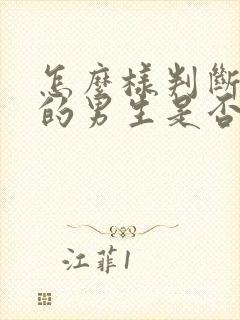 怎麼樣判斷
的男生是否
江菲1